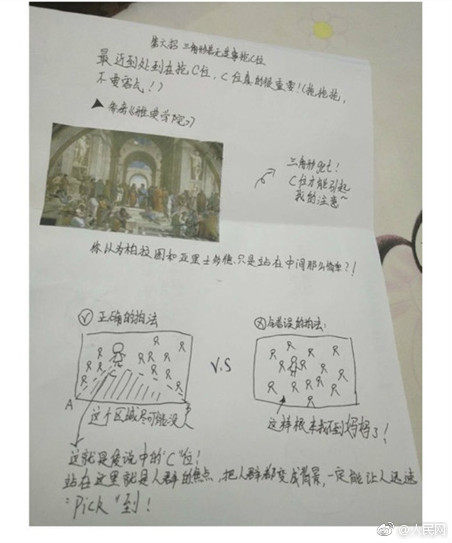 第六招 三角妙
最近到处到在抢C位，C位真的很重要！(抢抢抢，
不要客气！)
▲ 拿《雅典学院》
三角妙get！
C位才能引起
我的注意~
你以为柏拉图和亚里士多德，只是站在中间那么简单？！
正确的拍法
V.S
错误的拍法：
A
这个区域尽可能没人
这样根本找不到妈妈了！
这就是传说中的"C"位！
站在这里就是人群的焦点，把人群都变成背景，一定能让人迅速
"Pick"到！
@人民网